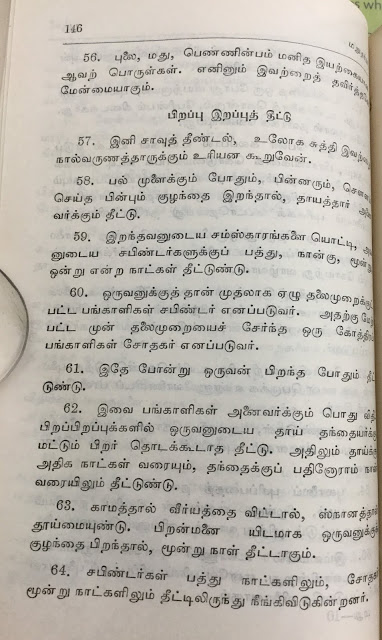 s wh
146
56. புலை, மது, பெண்ணின்பம் மனித
ஆவற் பொருள்கள். எனினும் இவற்றைத்
மேன்மையாகும்.
பிறப்பு இறப்புத் தீட்டு
57. இனி சாவுத் தீண்டல், உலோக சுத்தி
நால்வருணத்தாருக்கும் உரியன கூறுவேன்.
58. பல் முளைக்கும் போதும், பின்னரும்,
செய்த பின்பும் குழந்தை இறந்தால், தாயத்தார்
வர்க்கும் தீட்டு.
59. இறந்தவனுடைய சம்ஸ்காரங்களை யொட்டி,
னுடைய சபிண்டர்களுக்குப் பத்து, நான்கு,
ஒன்று என்ற நாட்கள் தீட்டுண்டு.
60. ஒருவனுக்குத் தான் முதலாக ஏழு
பட்ட பங்காளிகள் சபிண்டர் எனப்படுவர். அதற்கு
பட்ட முன் தலைமுறையைச் சேர்ந்த ஒரு
பங்காளிகள் சோதகர் எனப்படுவர்.
61. இதே போன்று ஒருவன் பிறந்த போதும்
டுண்டு.
62. இவை பங்காளிகள் அனைவர்க்கும் பொது
பிறப்பிறப்புக்களில் ஒருவனுடைய தாய்
மட்டும் பிறர் தொடக்கூடாத தீட்டு. அதிலும்
அதிக நாட்கள் வரையும், தந்தைக்குப் பதினோராம்
வரையிலும் தீட்டுண்டு.
63. காமத்தால் வீர்யத்தை விட்டால்,
தூய்மையுண்டு. பிறன்மனை யிடமாக
குழந்தை பிறந்தால், மூன்று நாள் தீட்டாகும்.
64. சபிண்டர்கள் பத்து நாட்களிலும்,
மூன்று நாட்களிலும் தீட்டிலிருந்து நீங்கிவிடுகின்றனர்.